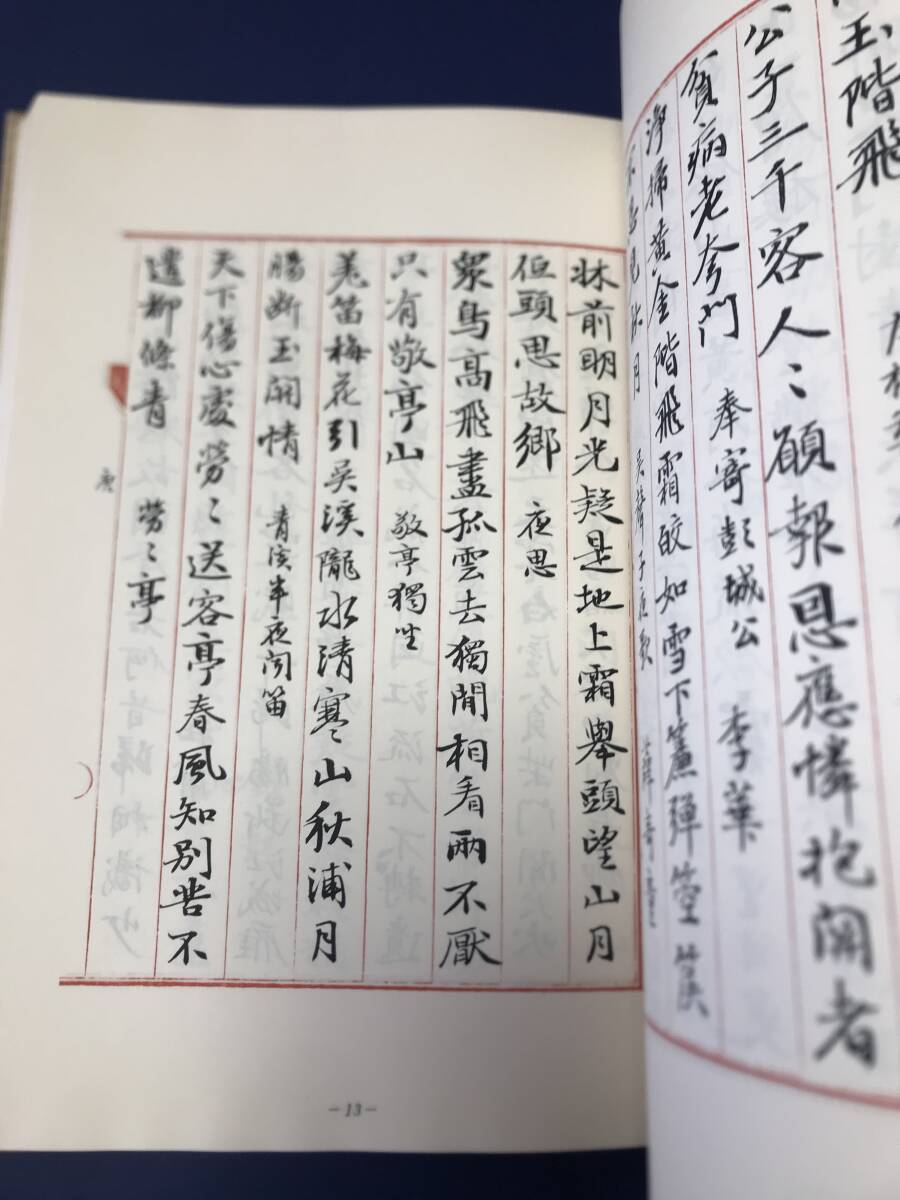 玉階飛
公子三千客人〻願報恩應憐抱關者
貧病老夷門 奉寄彭城公 李華
淨掃黃金階飛霜皎如雪下簾彈箜篌
不忍見秋月
牀前明月光疑是地上霜舉頭望山月
低頭思故鄉 夜思
眾鳥高飛盡孤雲去獨閒相看兩不厭
只有敬亭山 敬亭獨坐
羌笛梅花引吳溪隴水清寒山秋浦月
腸斷玉關情 青溪半夜聞笛
天下傷心處勞〻送客亭春風知別苦不
遣柳條青 勞〻亭
唐
-13-